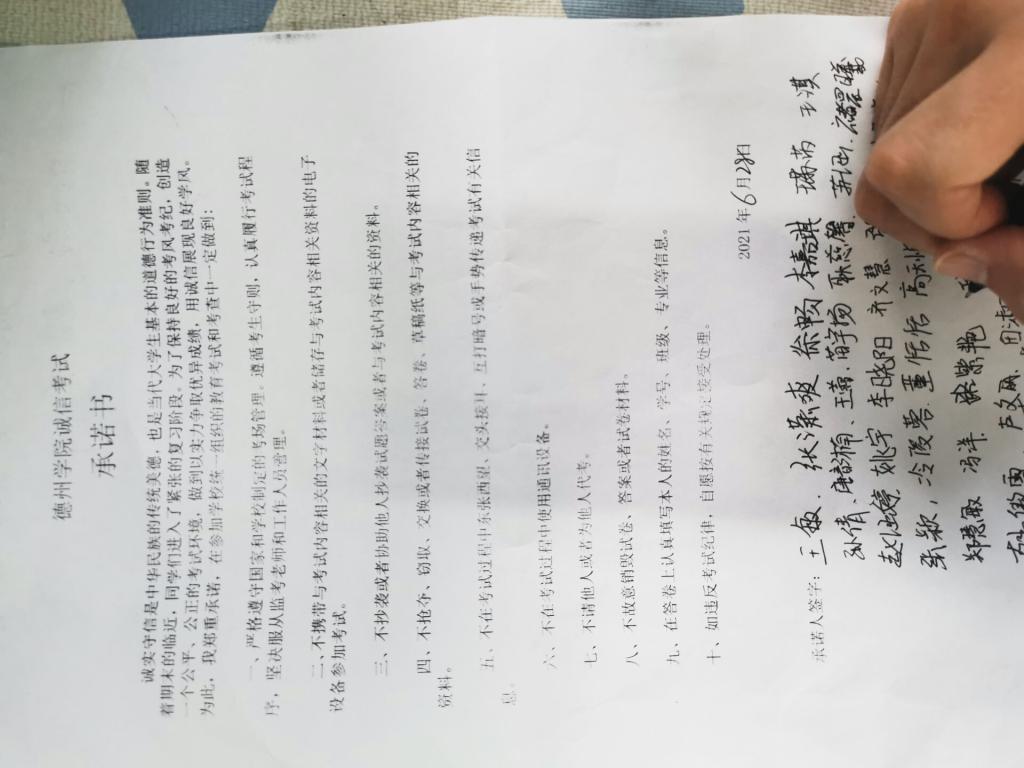 德州学院诚信考试
承诺书
诚实守信是中华民族的传统美德，也是当代大学生基本的道德行为准则。随
着期末的临近，同学们进入了紧张的复习阶段，为了保持良好的考风考纪，创造
一个公平、公正的考试环境，做到以实力争取优异成绩，用诚信展现良好学风。
为此，我郑重承诺，在参加学校统一组织的教育考试和考查中一定做到：
一、严格遵守国家和学校制定的考场管理。遵循考生守则，认真履行考试程
序，坚决服从监考老师和工作人员管理。
二、不携带与考试内容相关的文字材料或者储存与考试内容相关资料的电子
设备参加考试。
三、不抄袭或者协助他人抄袭试题答案或者与考试内容相关的资料。
四、不抢夺、窃取、交换或者传接试卷、答卷、草稿纸等与考试内容相关的
资料。
五、不在考试过程中东张西望、交头接耳、互打暗号或手势传递考试有关信
息。
六、不在考试过程中使用通讯设备。
七、不请他人或者为他人代考。
八、不故意销毁试卷、答案或者试卷材料。
九、在答卷上认真填写本人的姓名、学号、班级、专业等信息。
十、如违反考试纪律，自愿按有关规定接受处理。
2021年6月28日
承诺人签字：王敏 张潇爽 徐畅 李嘉琪 王淇
孙倩、王 苗宇阳
姚宇 李晓阳 齐文慧
董佸佸
郑慧敏 冯洋 张紫艳